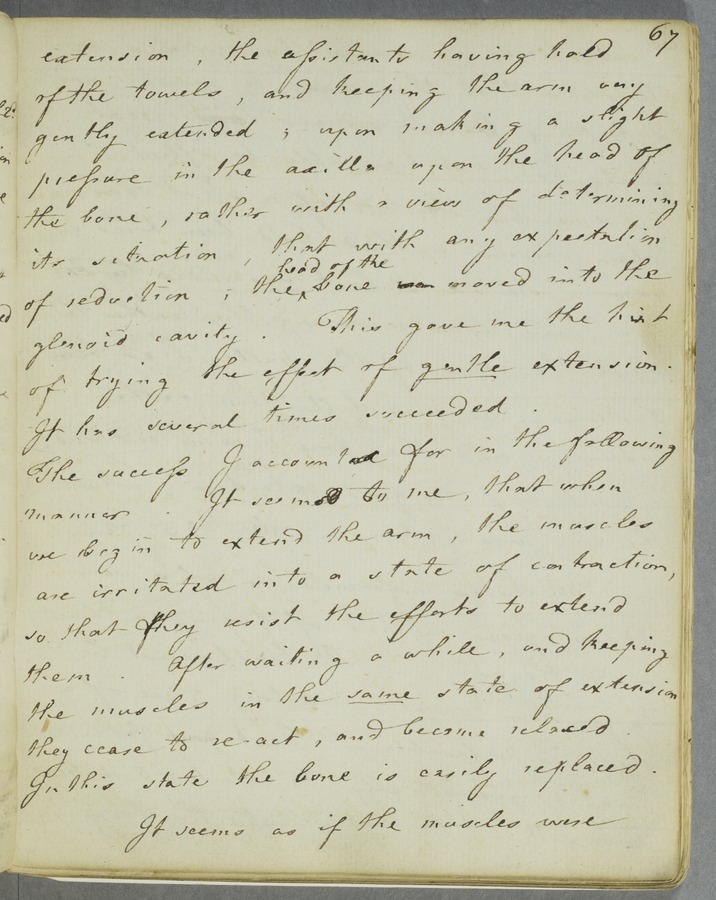 67
extension, the assistants having hold
of the towels, and keeping the arm very
gently extended; upon making a slight
pressure in the axilla upon the head of
the bone, rather with a view of determining
its situation, that with any expectation
head of the
of reduction; the bone moved into the
glenoid cavity. This gave me the hint
of trying the effect of gentle extension.
It has several times succeeded.
The success I accounted for in the following
manner. It seemed to me, that when
we begin to extend the arm, the muscles
are irritated into a state of contraction,
so that they resist the efforts to extend
them. After waiting a while, and keeping
the muscles in the same state of extension
they cease to re-act, and become relaxed.
In this state the bone is easily replaced.
It seems as if the muscles were